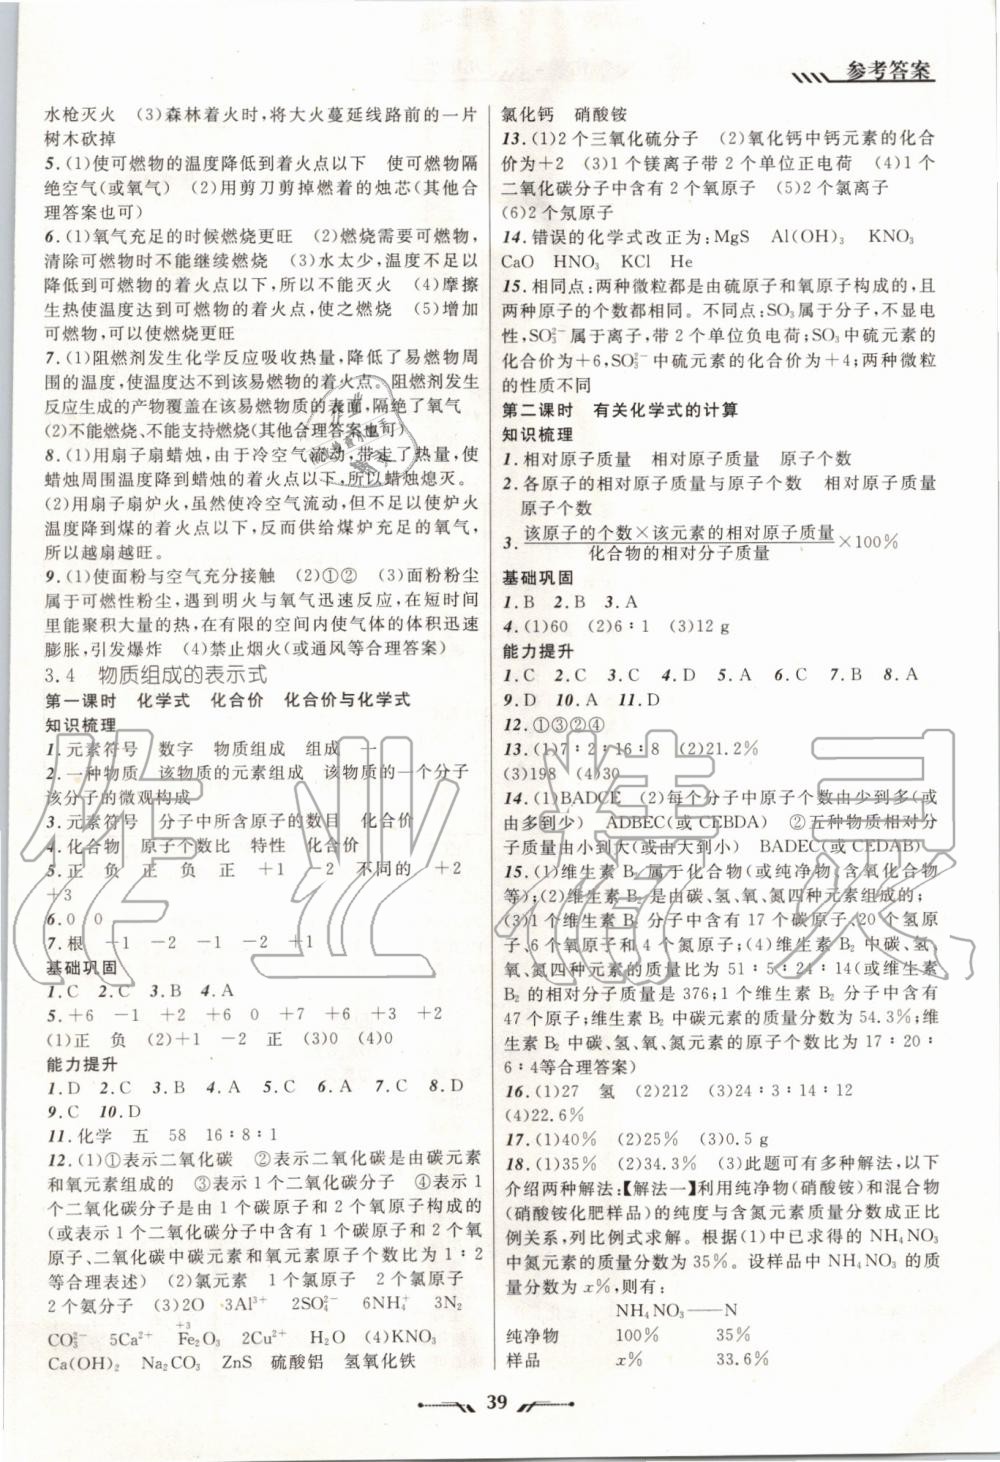 参考答案
水枪灭火　(3)森林着火时,将大火蔓延线路前的一片
树木砍掉
5.(1)使可燃物的温度降低到着火点以下　使可燃物隔
绝空气(或氧气)　(2)用剪刀剪掉燃着的烛芯(其他合
理答案也可)
6.(1)氧气充足的时候燃烧更旺　(2)燃烧需要可燃物,
清除可燃物时不能继续燃烧　(3)水太少,温度不足以
降低到可燃物的着火点以下,所以不能灭火　(4)摩擦
生热使温度达到可燃物的着火点,使之燃烧　(5)增加
可燃物,可以使燃烧更旺
7.(1)阻燃剂发生化学反应吸收热量,降低了易燃物周
围的温度,使温度达不到该易燃物的着火点。阻燃剂发生
反应生成的产物覆盖在该易燃物质的表面,隔绝了氧气
(2)不能燃烧、不能支持燃烧(其他合理答案也可)
8.(1)用扇子扇蜡烛,由于冷空气流动,带走了热量,使
蜡烛周围温度降到蜡烛的着火点以下,所以蜡烛熄灭。
(2)用扇子扇炉火,虽然使冷空气流动,但不足以使炉火
温度降到煤的着火点以下,反而供给煤炉充足的氧气,
所以越扇越旺。
9.(1)使面粉与空气充分接触　(2)①②　(3)面粉粉尘
属于可燃性粉尘,遇到明火与氧气迅速反应,在短时间
里能聚积大量的热,在有限的空间内使气体的体积迅速
膨胀,引发爆炸　(4)禁止烟火(或通风等合理答案)
3.4　物质组成的表示式
第一课时　化学式　化合价　化合价与化学式
知识梳理
1.元素符号　数字　物质组成　组成　一
2.一种物质　该物质的元素组成　该物质的一个分子
该分子的微观构成
3.元素符号　分子中所含原子的数目　化合价
4.化合物　原子个数比　特性　化合价
5.正　负　正　正　负　+1　-2　不同的　+2
+3
6.0　0
7.根　-1　-2　-1　-2　+1
基础巩固
1.C　2.C　3.B　4.A
5.+6　-1　+2　+6　0　+7　+6　+3
(1)正　负　(2)+1　-2　正　(3)0　(4)0
能力提升
1.D　2.C　3.B　4.A　5.C　6.A　7.C　8.D
9.C　10.D
11.化学　五　58　16∶8∶1
12.(1)①表示二氧化碳　②表示二氧化碳是由碳元素
和氧元素组成的　③表示1个二氧化碳分子　④表示
1个二氧化碳分子是由1个碳原子和2个氧原子构成的
(或表示1个二氧化碳分子中含有1个碳原子和2个氧
原子、二氧化碳中碳元素和氧元素原子个数比为1∶2
等合理表述)　(2)氯元素　1个氯原子　2个氯原子
2个氨分子　(3)2O　3Al³⁺　2SO₄²⁻　6NH₄⁺　3N₂
CO₃²⁻　5Ca²⁺　Fe₂O₃(Fe上方+3)　2Cu²⁺　H₂O　(4)KNO₃
Ca(OH)₂　Na₂CO₃　ZnS　硫酸铝　氢氧化铁
氯化钙　硝酸铵
13.(1)2个三氧化硫分子　(2)氧化钙中钙元素的化合
价为+2　(3)1个镁离子带2个单位正电荷　(4)1个
二氧化碳分子中含有2个氧原子　(5)2个氯离子
(6)2个氖原子
14.错误的化学式改正为:MgS　Al(OH)₃　KNO₃
CaO　HNO₃　KCl　He
15.相同点:两种微粒都是由硫原子和氧原子构成的,且
两种原子的个数都相同。不同点:SO₃属于分子,不显电
性,SO₃²⁻属于离子,带2个单位负电荷;SO₃中硫元素的
化合价为+6,SO₃²⁻中硫元素的化合价为+4;两种微粒
的性质不同
第二课时　有关化学式的计算
知识梳理
1.相对原子质量　相对原子质量　原子个数
2.各原子的相对原子质量与原子个数　相对原子质量
原子个数
3.该原子的个数×该元素的相对原子质量/化合物的相对分子质量×100%
基础巩固
1.B　2.B　3.A
4.(1)60　(2)6∶1　(3)12 g
能力提升
1.C　2.C　3.C　4.A　5.C　6.C　7.B　8.A
9.D　10.A　11.D
12.①③②④
13.(1)7∶2∶16∶8　(2)21.2%
(3)198　(4)30
14.(1)BADCE　(2)每个分子中原子个数由少到多(或
由多到少)　ADBEC(或CEBDA)　②五种物质相对分
子质量由小到大(或由大到小)　BADEC(或CEDAB)
15.(1)维生素B₂属于化合物(或纯净物,含氧化合物
等);(2)维生素B₂是由碳、氢、氧、氮四种元素组成的;
(3)1个维生素B₂分子中含有17个碳原子、20个氢原
子、6个氧原子和4个氮原子;(4)维生素B₂中碳、氢、
氧、氮四种元素的质量比为51∶5∶24∶14(或维生素
B₂的相对分子质量是376;1个维生素B₂分子中含有
47个原子;维生素B₂中碳元素的质量分数为54.3%;维
生素B₂中碳、氢、氧、氮元素的原子数之比为17∶20∶
6∶4等合理答案)
16.(1)27　氢　(2)212　(3)24∶3∶14∶12
(4)22.6%
17.(1)40%　(2)25%　(3)0.5 g
18.(1)35%　(2)34.3%　(3)此题可有多种解法,以下
介绍两种解法:【解法一】利用纯净物(硝酸铵)和混合物
(硝酸铵化肥样品)的纯度与含氮元素质量分数成正比
例关系,列比例式求解。根据(1)中已求得的NH₄NO₃
中氮元素的质量分数为35%。设样品中NH₄NO₃的质
量分数为x%,则有:
NH₄NO₃——N
纯净物　100%　35%
样品　x%　33.6%
39
作业精灵